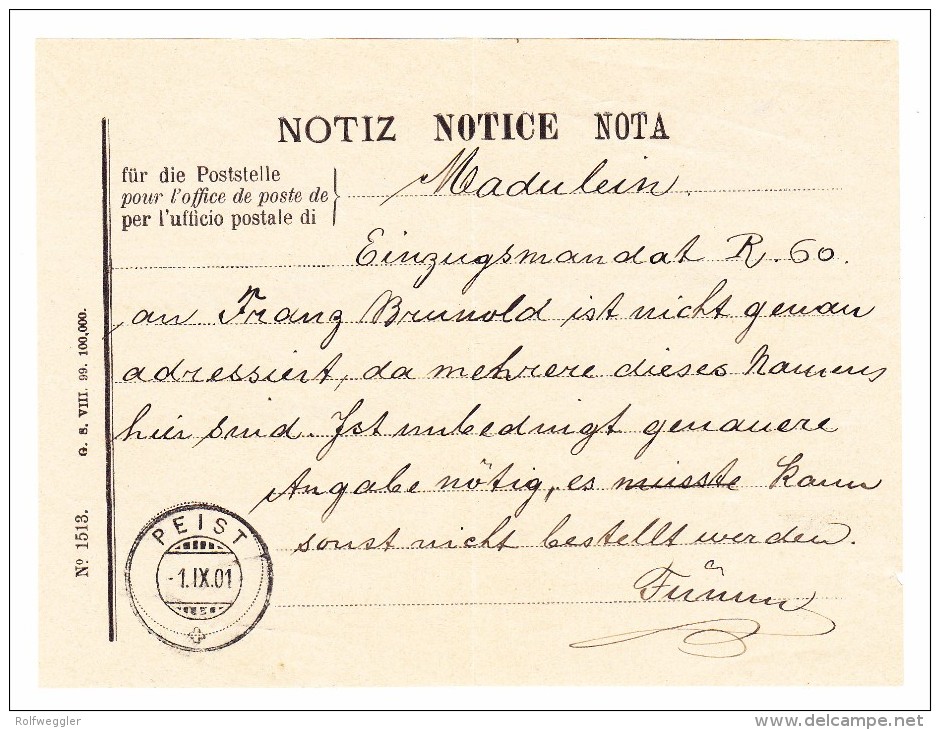 NOTIZ NOTICE NOTA
für die Poststelle
pour l'office de poste de
per l'ufficio postale di
Madulein.
Einzugsmandat R. 60.
an Franz Brunold ist nicht genau
adressiert, da mehrere dieses Namens
hier sind. Ist unbedingt genauere
Angabe nötig, es müsste kann
sonst nicht bestellt werden.
G. S. VIII. 99. 100,000.
Nº 1513.
PEIST
-1.IX.01
Rolfweggler
www.delcampe.net